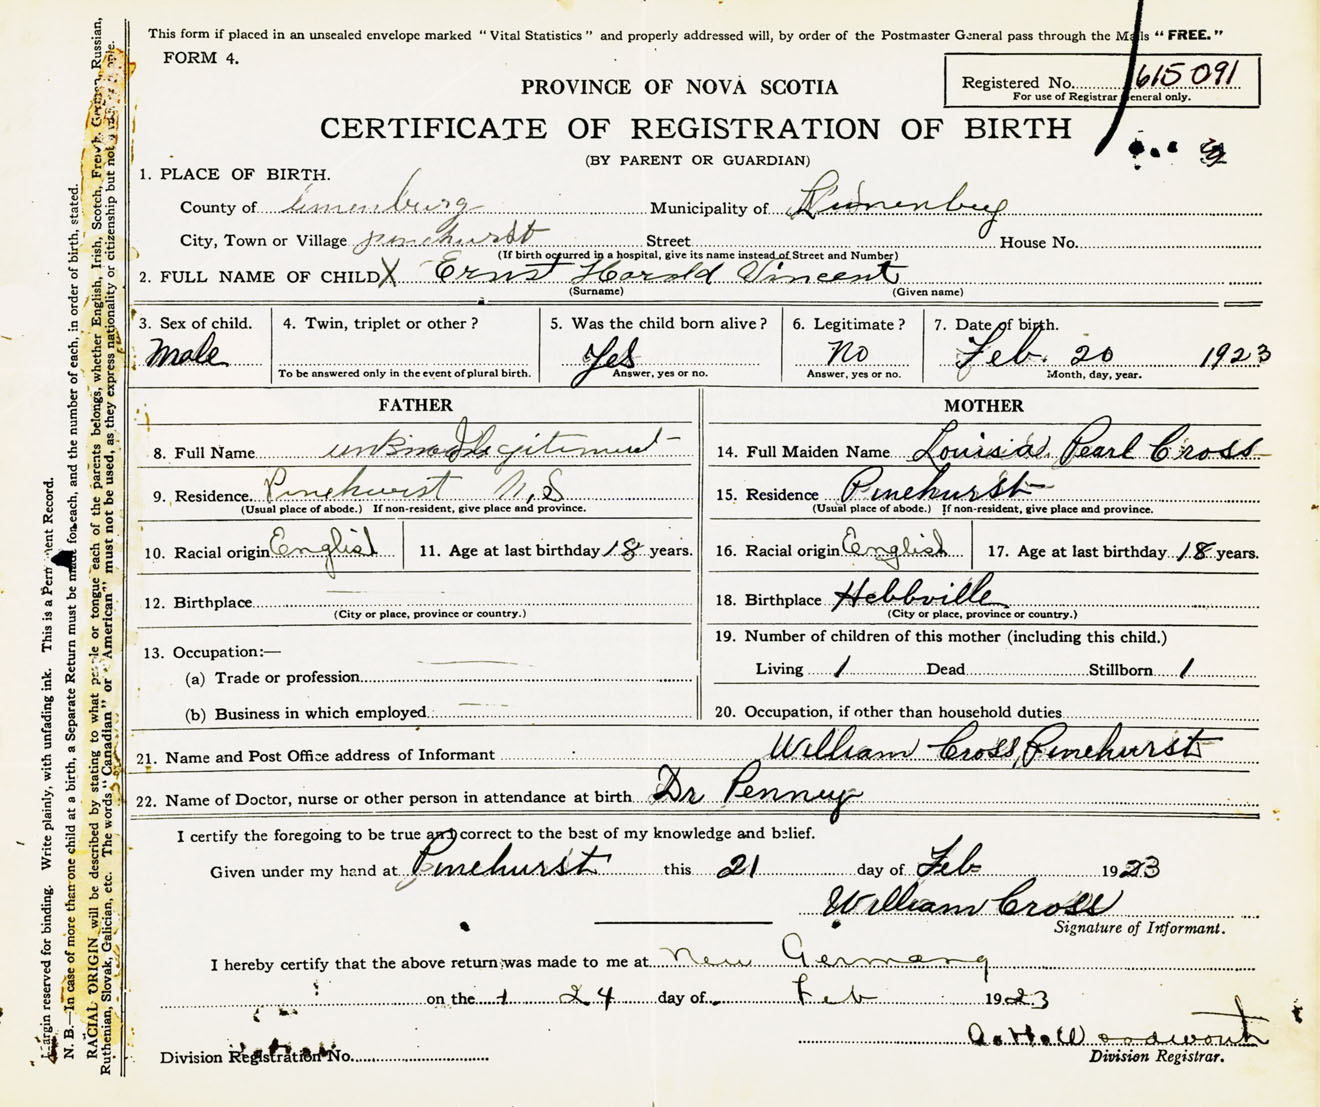 This form if placed in an unsealed envelope marked "Vital Statistics" and properly addressed will, by order of the Postmaster General pass through the Mails "FREE."
FORM 4.
Registered No. 615091
For use of Registrar General only.
PROVINCE OF NOVA SCOTIA
CERTIFICATE OF REGISTRATION OF BIRTH
(BY PARENT OR GUARDIAN)
1. PLACE OF BIRTH.
County of Lunenburg Municipality of Lunenbug
City, Town or Village pinehurst Street House No.
(If birth occurred in a hospital, give its name instead of Street and Number)
2. FULL NAME OF CHILD X Ernst Harold Vincent
(Surname) (Given name)
3. Sex of child. 4. Twin, triplet or other? 5. Was the child born alive? 6. Legitimate? 7. Date of birth.
Male Yes No Feb. 20 1923
To be answered only in the event of plural birth. Answer, yes or no. Answer, yes or no. Month, day, year.
FATHER
8. Full Name
9. Residence. Pinehurst N.S
(Usual place of abode.) If non-resident, give place and province.
10. Racial origin English 11. Age at last birthday 18 years.
12. Birthplace
(City or place, province or country.)
13. Occupation:—
(a) Trade or profession
(b) Business in which employed
MOTHER
14. Full Maiden Name Louisia Pearl Cross
15. Residence Pinehurst
(Usual place of abode.) If non-resident, give place and province.
16. Racial origin English 17. Age at last birthday 18 years.
18. Birthplace Hebbville
(City or place, province or country.)
19. Number of children of this mother (including this child.)
Living 1 Dead Stillborn 1
20. Occupation, if other than household duties
21. Name and Post Office address of Informant William Cross, Pinehurst
22. Name of Doctor, nurse or other person in attendance at birth Dr Penney
I certify the foregoing to be true and correct to the best of my knowledge and belief.
Given under my hand at Pinehurst this 21 day of Feb 1923
William Cross
Signature of Informant.
I hereby certify that the above return was made to me at New Germany
on the 24 day of Feb 1923
Woodworth
Division Registrar.
Division Registration No.
Margin reserved for binding. Write plainly, with unfading ink. This is a Permanent Record.
N. B.—In case of more than one child at a birth, a Separate Return must be made for each, and the number of each, in order of birth, stated.
RACIAL ORIGIN will be described by stating to what people or tongue each of the parents belongs, whether English, Irish, Scotch, French, German, Russian,
Ruthenian, Slovak, Galician, etc. The words "Canadian" or "American" must not be used, as they express nationality or citizenship but not people.